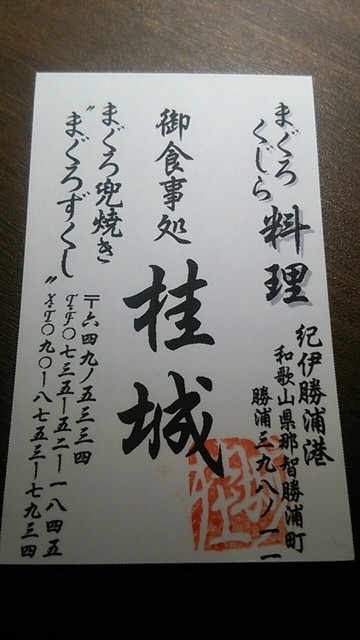 まぐろ
くじら
料理
紀伊勝浦港
和歌山県那智勝浦町
勝浦三九八ノ一一
御食事処
桂城
まぐろ兜焼き
〝まぐろずくし〟
〒六四九ノ五三三四
T・F〇七三五ー五二ー一八四五
〇九〇ー八七五三ー七九三四